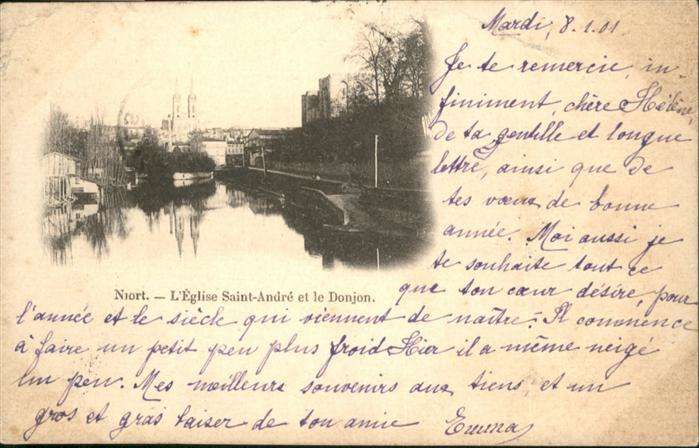 Mardi, 8.1.01
Je te remercie, in-
finiment, chère Hélène
de ta gentille et longue
lettre, ainsi que de
tes vœux de bonne
année. Moi aussi je
te souhaite tout ce
que ton cœur désire, pour
l'année et le siècle qui viennent de naître. Il commence
à faire un petit peu plus froid Hier il a même neigé
un peu. Mes meilleurs souvenirs aux tiens et un
gros et gras baiser de ton amie Emma
Niort. — L'Église Saint-André et le Donjon.